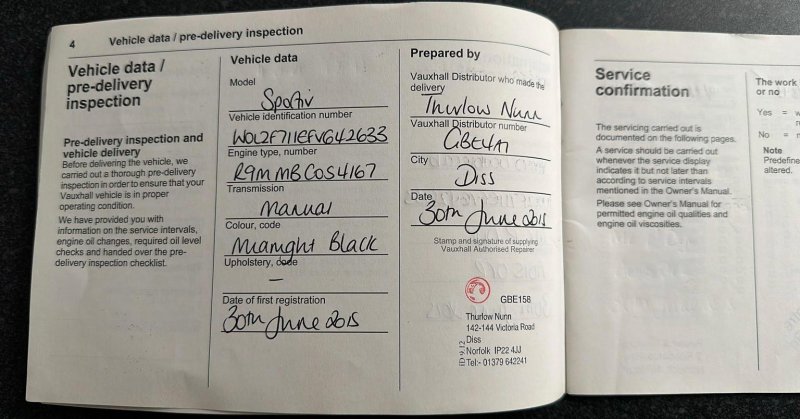 4 Vehicle data / pre-delivery inspection
Vehicle data /
pre-delivery
inspection
Pre-delivery inspection and
vehicle delivery
Before delivering the vehicle, we
carried out a thorough pre-delivery
inspection in order to ensure that your
Vauxhall vehicle is in proper
operating condition.
We have provided you with
information on the service intervals,
engine oil changes, required oil level
checks and handed over the pre-
delivery inspection checklist.
Vehicle data
Model
Sportiv
Vehicle identification number
W0L2F711EFV642633
Engine type, number
R9MMBC054167
Transmission
Manual
Colour, code
Midnight Black
Upholstery, code
–
Date of first registration
30th June 2015
Prepared by
Vauxhall Distributor who made the
delivery
Thurlow Nunn
Vauxhall Distributor number
City
Diss
Date
30th June 2015
Stamp and signature of supplying
Vauxhall Authorised Repairer
GBE158
Thurlow Nunn
142-144 Victoria Road
Diss
Norfolk IP22 4JJ
Tel:- 01379 642241
Service
confirmation
The servicing carried out is
documented on the following pages.
A service should be carried out
whenever the service display
indicates it but not later than
according to service intervals
mentioned in the Owner's Manual.
Please see Owner's Manual for
permitted engine oil qualities and
engine oil viscosities.
The work
or no
Yes = w
No =
Note
Predefine
altered.